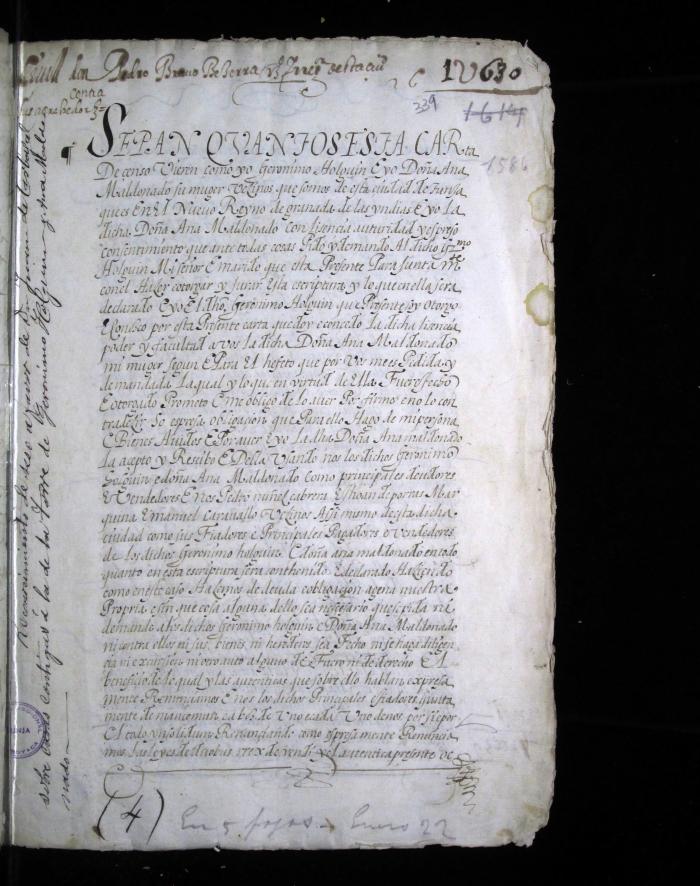 don Pedro Brauo Beserra
contra
1U630
26
339
1614
1586
SEPAN QVANTOS ESTA CARta
De censo Vieren como yo Geronimo Holguin E yo Doña Ana
Maldonado su muger Vezinos que somos de esta ciudad de Tunja
ques En El Nuevo Reyno de granada de las yndias E yo La
dicha Doña Ana Maldonado con lisencia autoridad y espreso
consentimiento que ante todas cosas Pido y demando Al dicho grmo
Holguin Mi señor E marido que esta Presente Para juntam te
con el Hazer e otorgar y Jurar Esta escriptura y lo que en ella sera
declarado E yo El dho Geronimo Holguin que Presente soy otorgo
E conosco por esta Presente carta que doy e concedo La dicha licencia
poder y facultad a vos la dicha Doña Ana Maldonado
mi muger segun E Para El hefeto que por Vos me es Pidida y
demandada La qual y lo que en virtud de Ella Fuere fecho
E otorgado Prometo E me obligo de lo auer Por firme e no lo con
tradezir So espresa obligacion que Para ello Hago de mi persona
E Bienes Auidos E Por auer E yo La dha Doña Ana maldonado
La acepto y Resibo E Della Usando nos los dichos Geronimo
Holguin e doña Ana Maldonado como principales deudores
E Vendedores E nos Pedro nuñez cabrera Esteuan de porras Mar
quina E manuel Carauallo Vezinos Assi mismo desta dicha
ciudad como sus Fiadores e Principales Pagadores e Vendedores
de los dichos Geronimo holguin E doña ana maldonado en todo
quanto en esta escriptura sera conthenido E declarado Haziendo
como en este caso Hazemos de deuda e obligacion agena nuestra
Propria e sin que cosa alguna dello sea nesesario que se pida ni
demande a los dichos Geronimo holguin e Doña Ana Maldonado
ni contra ellos ni sus bienes ni herederos sea Fecho ni se haga diligen
cia ni excursion ni otro auto alguno de Fuero ni de derecho El
benefisio de lo qual y las autenticas que sobre ello hablan expresa
mente Renunciamos E nos los dichos Principales e fiadores Junta
mente de mancomun e a boz de Uno e cada Uno de nos por si e por
El todo ynsolidum Renunciando como espresamente Renuncia
mos las leyes de duobus rrex de vendi y el autentica presente oc
(4) En 5 fojas - Enero 22
Reconocimiento de
sobre casas contiguas á la de la Torre de Geronimo Holguin y Ana Maldo
nado —